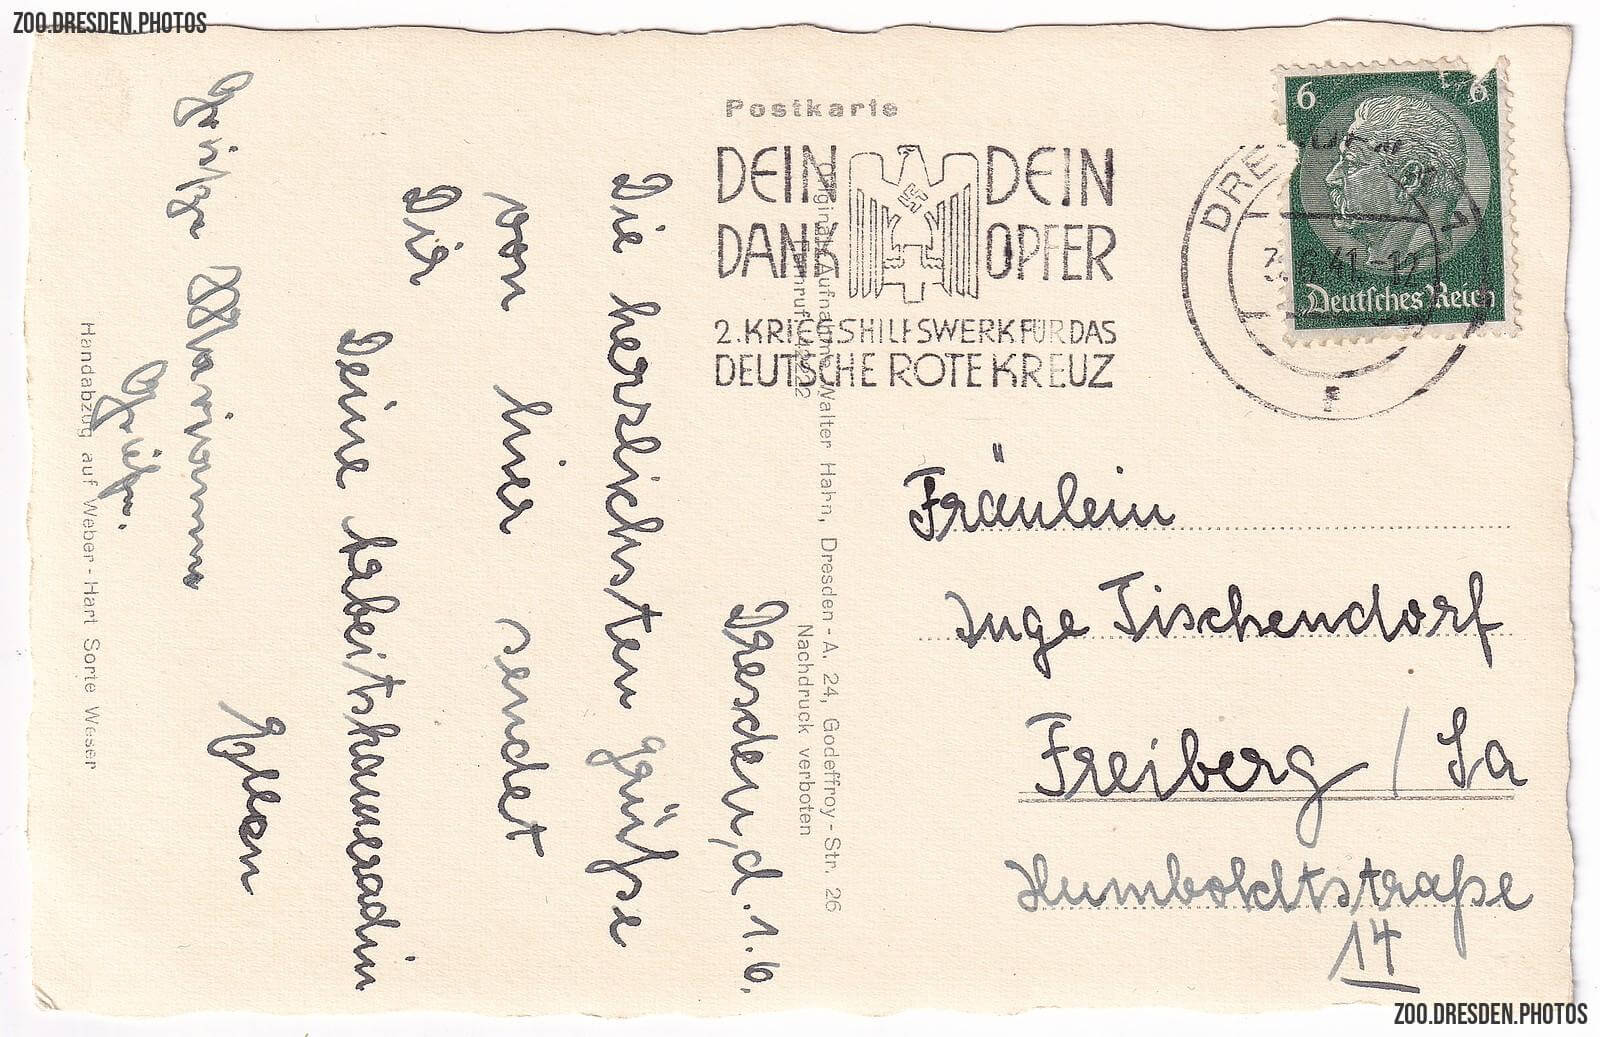 ZOO.DRESDEN.PHOTOS
Postkarte
DEIN DANK DEIN OPFER
2. KRIEGSHILFSWERK FÜR DAS
DEUTSCHE ROTE KREUZ
6 6
Deutsches Reich
41-12
Dresden, d. 1.6.
Die herzlichsten Grüße
von hier sendet
Dir
Deine Arbeitskameradin
Ellen
Marianne
Original-Aufnahme Walter Hahn, Dresden-A. 24, Godeffroy-Str. 26
Nachdruck verboten
Handabzug auf Weber-Hart Sorte Weser
Fräulein
Inge Tischendorf
Freiberg / Sa
Humboldtstraße
14
ZOO.DRESDEN.PHOTOS